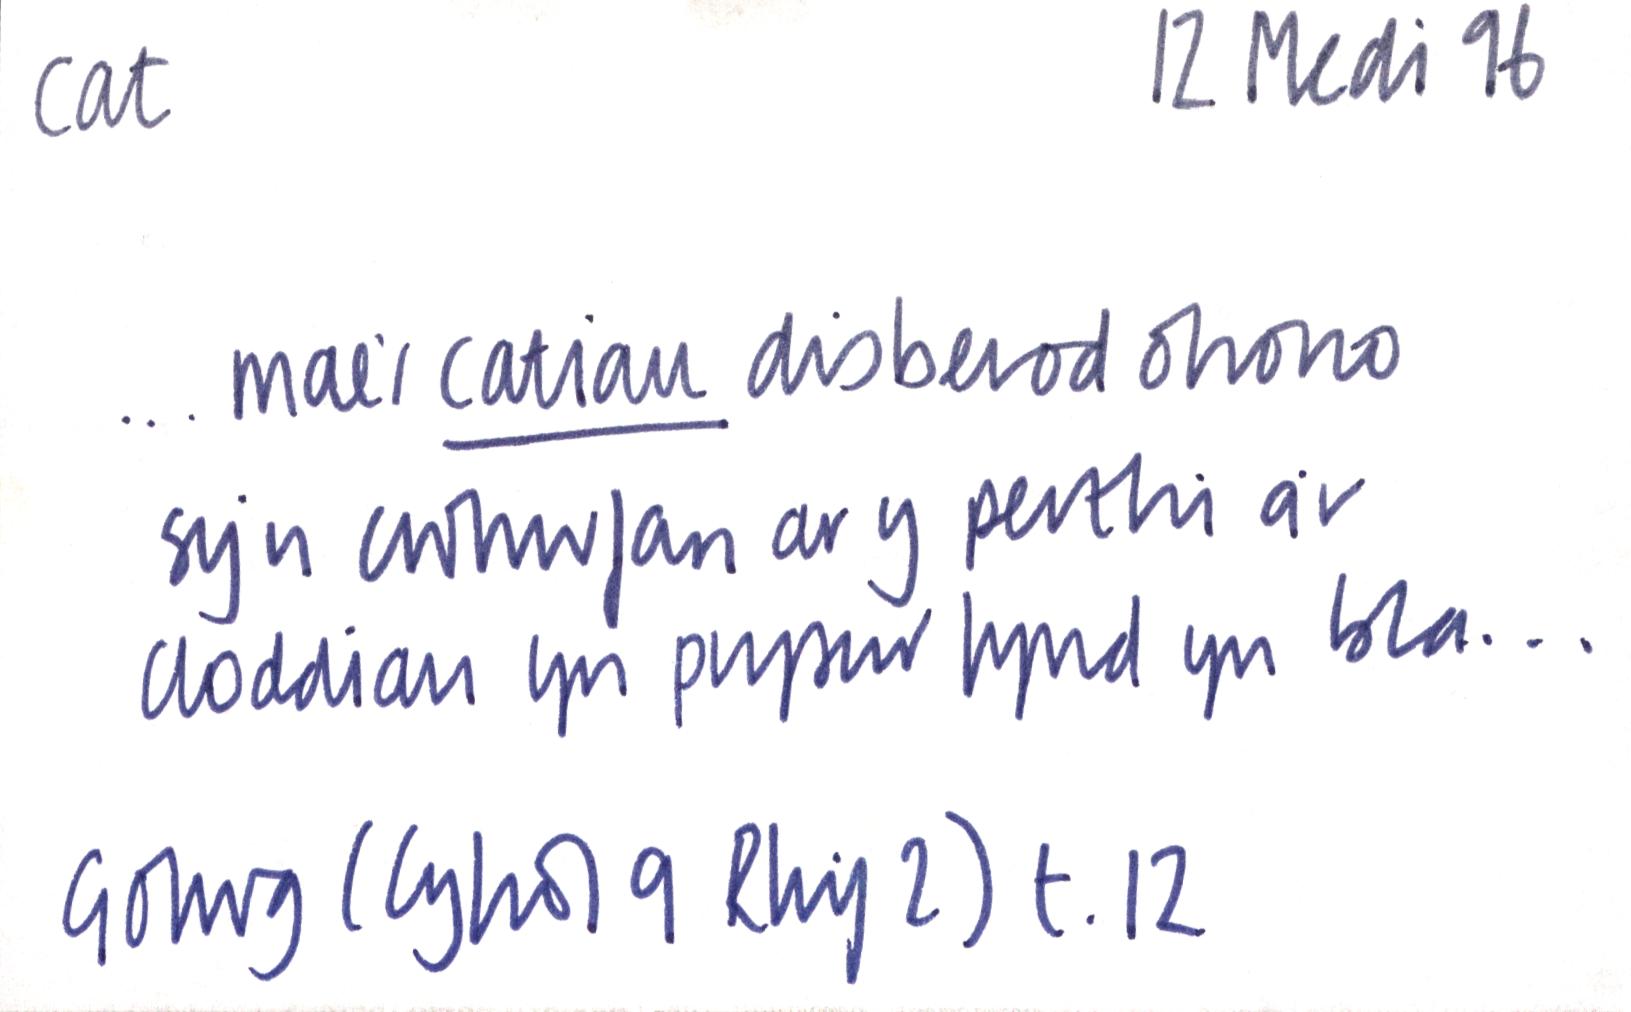 cat 12 Medi 96
... mae'r catiau disberod ohono
sy'n cwhwfan ar y perthi a'r
cloddiau yn prysur fynd yn bla...
Golwg (Cyfrol 9 Rhif 2) t. 12